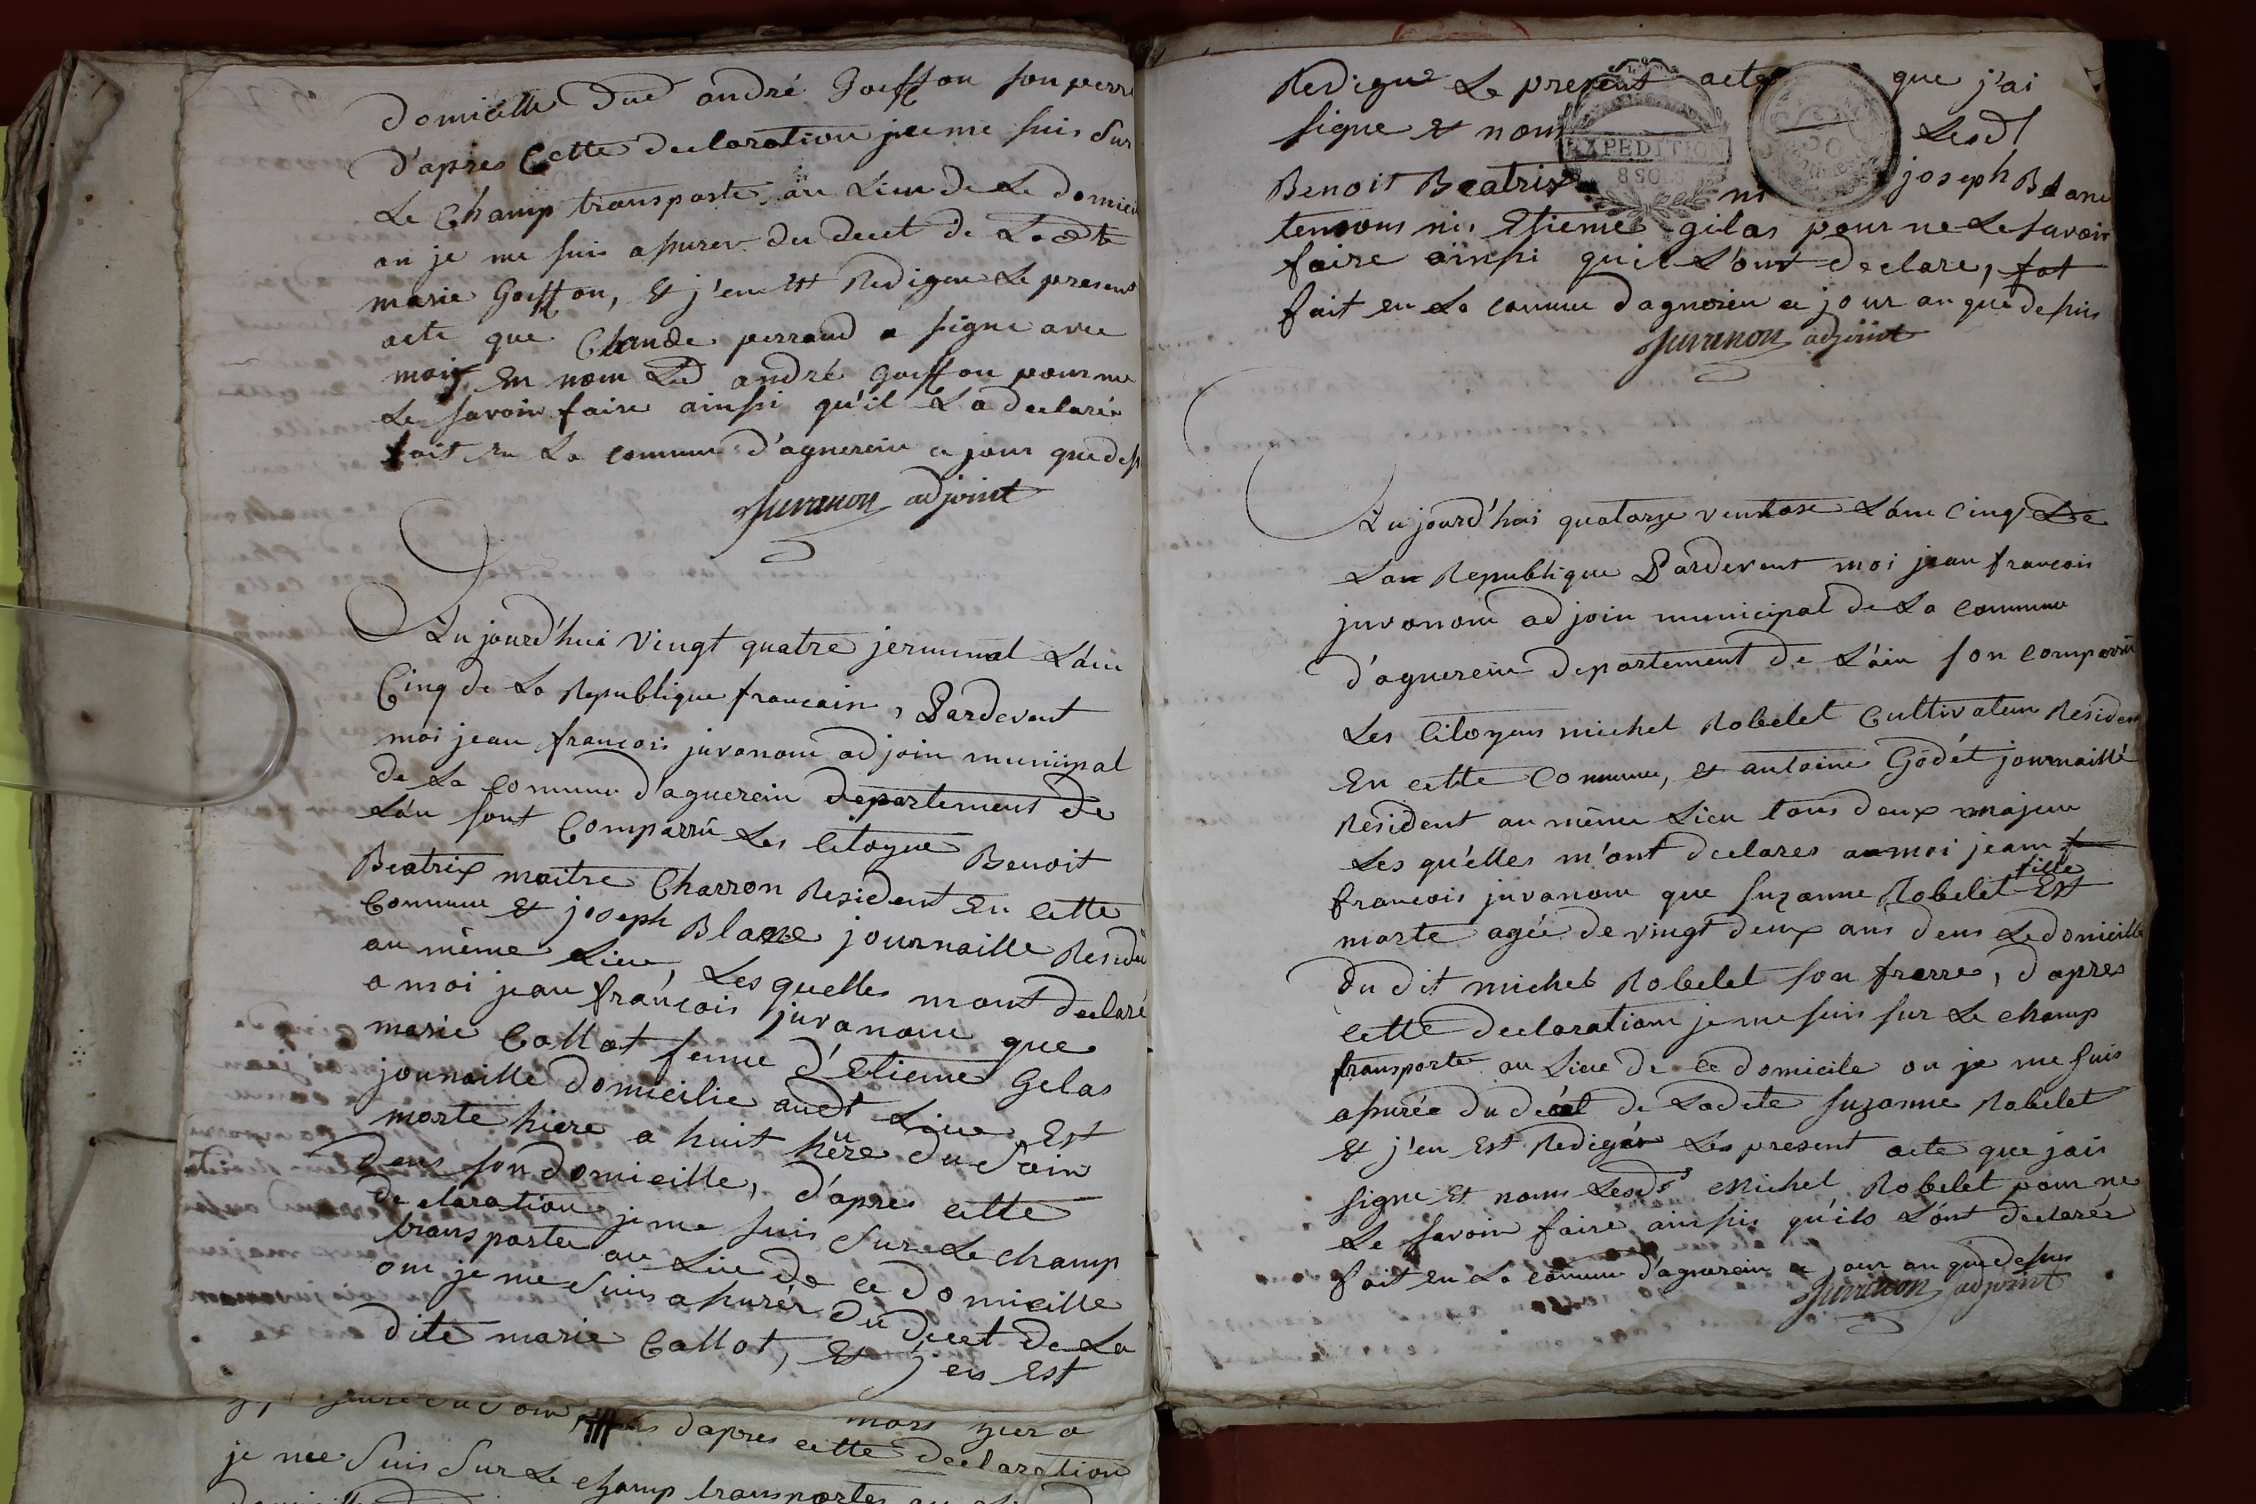 domicille dud andré Goiffon son perre
d'apres Cette declaration je me suis Sur
Le Champ transporte au Lieu de Le domici
ou je me suis assurer du decet de Ladte
marie Goiffon, Et j'en Est Redigue Le present
acte que Claude perraud a signe avec
moi, En nom Led andré Goiffon pour ne
Le savoir faire ainssi qu'il L'a declaré
fait en La commune d'aguerein ce jour que dess
Juvanon adjoint
Aujourd'hui vingt quatre jerminal L'an
Cinq de La Republique francain, Pardevent
moi jean françois juvanon adjoin municipal
de La commune d'aguerein departement de
L'ain sont Comparrû Les Citoyens Benoit
Beatrix maitre Charron Resident En Cette
Commune Et joseph Blanc journaille Reside
au même Lieu, Les quelles mont declaré
a moi jean françois juvanon que
marie Collot femme d'Etienne Gelas
jounaille domicilie audt Lieu Est
morte hiere a huit hure du Soir
dens son domicille, d'apres cette
declaration je me suis Sur Le champ
transporte au Lieu de ce domicille
ou je me suis assurér du decet de La
dite marie Collot, Et j'en Est
mors yer a
d'apres cette declaration
je me Suis Sur Le champ transporter
Redigue Le present acte que j'ai
signe Et nom Lesdt
Benoit Beatrix ni joseph Blanc
temoins ni Etienne gilas pour ne Le savoir
faire ainssi quil L'ont declare, fat
fait en La comune daguerein ce jour an que dessus
Juvanon adjoint
Aujourd'hui quatorze ventose L'an Cinq de
Lan Republique Pardevent moi jean francois
juvanom adjoin municipal de La commune
d'aguerein departement de L'ain son comparrû
Les Citoyens michel Robelet Cultivateur Resident
En cette Comune, et antoine Godét journaillé
Resident au même Lieu tous deux majeur
Les qu'elles m'ont declares a moi jeam f
françois juvanom que suzanne Robelet fille Est
morte agée de vingt deux ans dens Le domicille
du dit michel Robelet son frerre, d'apres
cette declaration je me suis sur Le champ
transporte au Lieu de ce domicile ou je me suis
assurée du decet de Ladete suzanne Robelet
Et j'en Est Redigér Le present acte que jais
signe Et nom Lesdts Michel Robelet pour ne
Le savoir faire ainssis qu'ils L'ont declarée
fait en La comune d'aguerein ce jour an que dessus
Juvanon adjoint
EXPEDITION